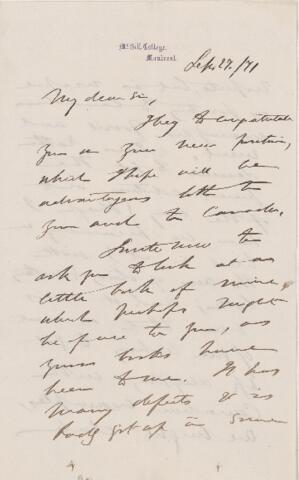 McGill College,
Montreal.
Sep 27/71
My dear Sir,
I beg to congratulate
you on your new position,
which I hope will be
advantageous both to
you and to Canada.
I write now to
ask you to look at a
little book of mine
which perhaps might
be of use to you, as
your books have
been to me. It has
many defects & is
badly got up in some